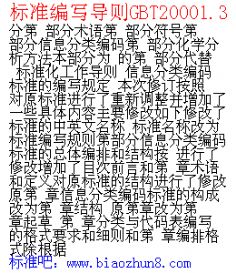 标准编写导则GBT20001.3
分第 部分术语第 部分符号第
部分信息分类编码第 部分化学分
析方法本部分为 的第 部分代替
标准化工作导则 信息分类编码
标准的编写规定 本次修订按照
对原标准进行了重新调整并增加了
一些具体内容主要修改如下修改了
标准的中英文名称 标准名称改为
标准编写规则第部分信息分类编码
标准的总体编排和结构按 进行了
修改增加了目次前言和第 章术语
和定义对原标准的结构进行了修改
原第 章信息分类编码标准的构成
改为第 章结构 原第章改为第
章起草 第 章分类与代码表编写
的格式要求和细则和第 章编排格
式除根据
标准吧：www.biaozhun8.com